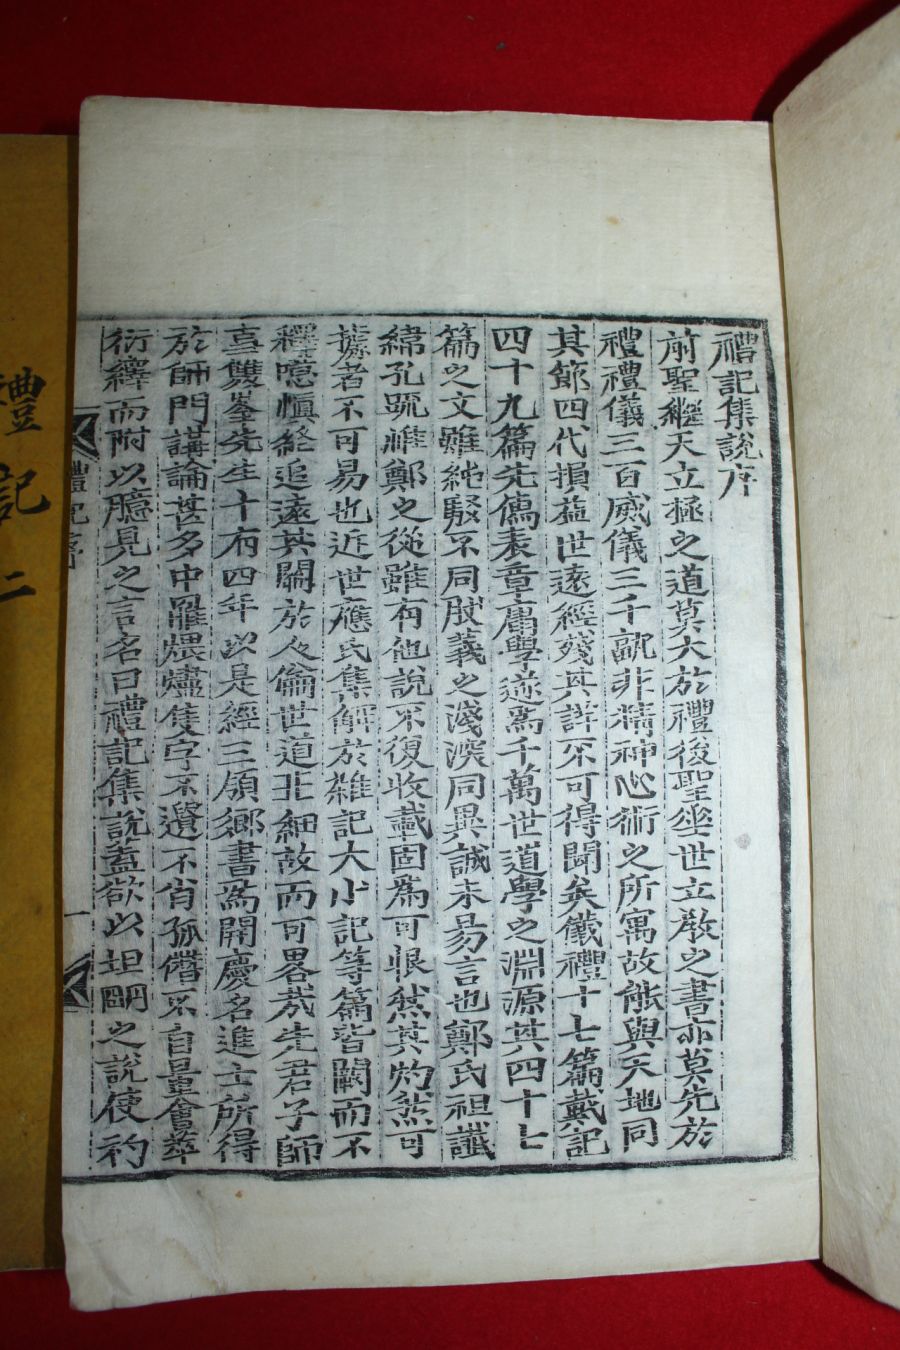 禮記集說序
前聖繼天立極之道莫大於禮後聖垂世立敎之書亦莫先於
禮禮儀三百威儀三千孰非精神心術之所寓故能與天地同
其節四代損益世遠經殘其詳不可得聞矣儀禮十七篇戴記
四十九篇先儒表章庸學遂爲千萬世道學之淵源其四十七
篇之文雖純駁不同然義之淺深同異誠未易言也鄭氏祖讖
緯孔疏惟鄭之從雖有他說不復收載固爲可恨然其灼然可
據者不可易也近世應氏集解於雜記大小記等篇皆闕而不
釋噫愼終追遠其關於人倫世道非細故而可畧哉先君子師
事雙峯先生十有四年以是經三領鄕書爲開慶名進士所得
於師門講論甚多中罹煨燼隻字不遺不肖孤僭不自量會萃
衍繹而附以臆見之言名曰禮記集說蓋欲以坦明之說使初
禮記序
一
禮記 二